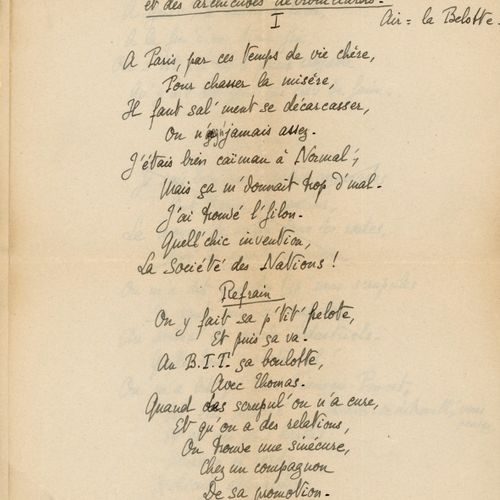 et des archicubes
I
Air = la Belotte.
A Paris, par ces temps de vie chère,
Pour chasser la misère,
Il faut sal'ment se décarcasser,
On n' jamais assez.
J'étais bien caïman à Normal';
Mais ça m' donnait trop d'mal.
J'ai trouvé l'filon.
Quell' chic invention,
La Société des Nations !
Refrain
On y fait sa p'tit' pelote,
Et puis ça va.
Au B.I.T. ça boulotte,
Avec Thomas.
Quand des scrupul' on n'a cure,
Et qu'on a des relations,
On trouve une sinécure,
Chez un compagnon
De sa promotion.